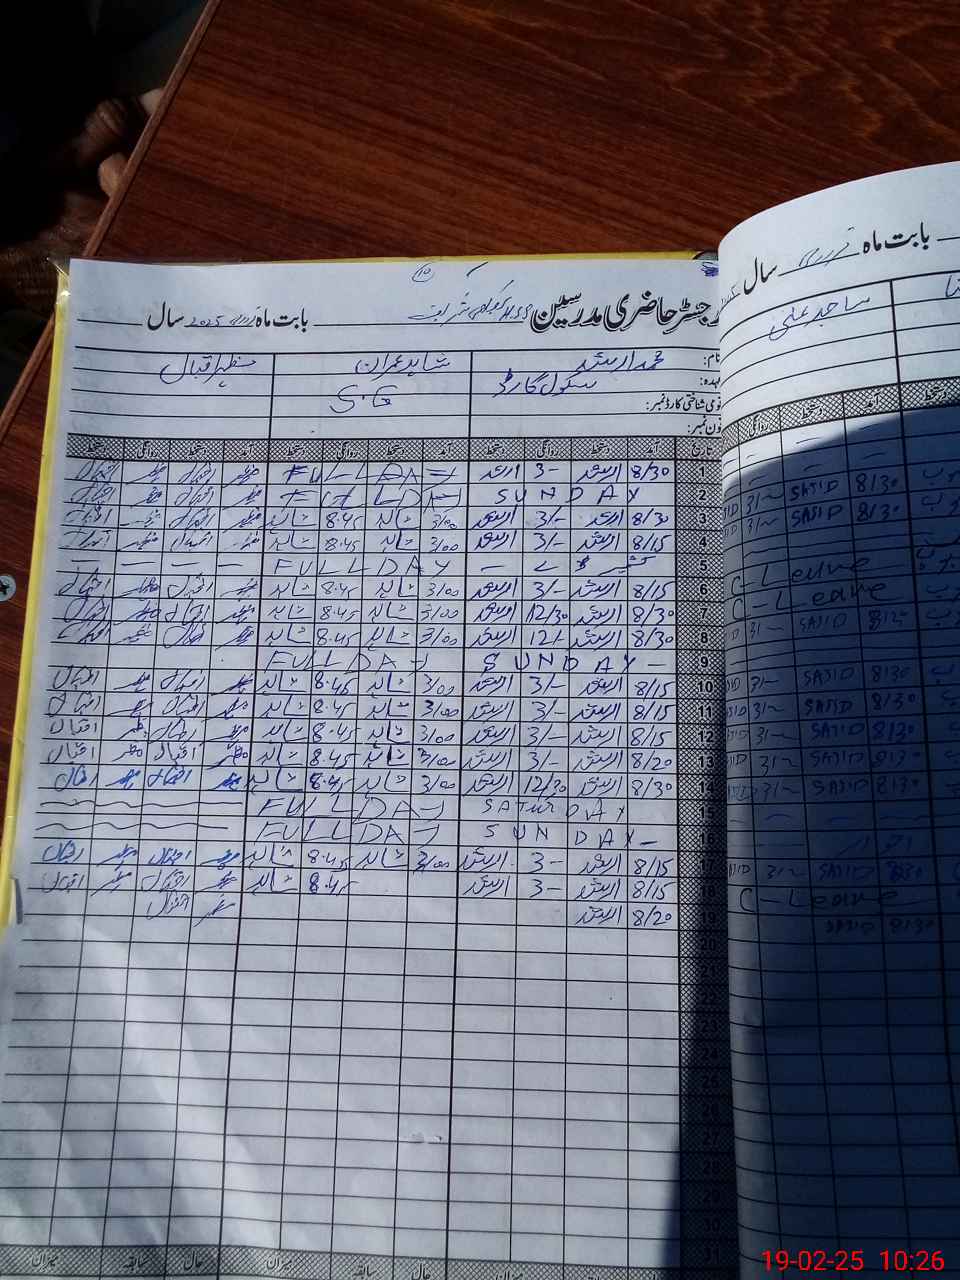 رجسٹر حاضری مدرسین HSS بابت ماہ فروری 2025 سال
نام: محمد ارشد شاہد عمران مظہر اقبال
عہدہ: سکول گارڈ S.G
قومی شناختی کارڈ نمبر:
فون نمبر:
تاریخ آمد دستخط روانگی دستخط آمد دستخط روانگی دستخط آمد دستخط روانگی دستخط
1 8/30 ارشد 3- ارشد FULL DAY مظہر اقبال مظہر اقبال
2 SUNDAY FULL DAY مظہر اقبال مظہر اقبال
3 8/30 ارشد 3/- ارشد 3/00 شاہد 8.45 شاہد مظہر اقبال مظہر اقبال
4 8/15 ارشد 3/- ارشد 3/00 شاہد 8.45 شاہد مظہر اقبال مظہر اقبال
5 کشمیر ڈے - FULL DAY - - - -
6 8/15 ارشد 3/- ارشد 3/00 شاہد 8.45 شاہد مظہر اقبال مظہر اقبال
7 8/30 ارشد 12/30 ارشد 3/00 شاہد 8.45 شاہد مظہر اقبال مظہر اقبال
8 8/30 ارشد 12/- ارشد 3/00 شاہد 8.45 شاہد مظہر اقبال مظہر اقبال
9 SUNDAY - FULL DAY
10 8/15 ارشد 3/- ارشد 3/00 شاہد 8.45 شاہد مظہر اقبال مظہر اقبال
11 8/15 ارشد 3/- ارشد 3/00 شاہد 8.45 شاہد مظہر اقبال مظہر اقبال
12 8/15 ارشد 3/- ارشد 3/00 شاہد 8.45 شاہد مظہر اقبال مظہر اقبال
13 8/20 ارشد 3/- ارشد 3/00 شاہد 8.45 شاہد مظہر اقبال مظہر اقبال
14 8/30 ارشد 12/30 ارشد 3/00 شاہد 8.45 شاہد مظہر اقبال مظہر اقبال
15 SATURDAY FULL DAY
16 SUNDAY - FULL DAY
17 8/15 ارشد 3- ارشد 3/00 شاہد 8.45 شاہد مظہر اقبال مظہر اقبال
18 8/15 ارشد 3- ارشد 8.45 شاہد مظہر اقبال مظہر اقبال
19 8/20 ارشد مظہر اقبال
20
21
22
23
24
25
26
27
28
29
30
31
میزان سابقہ حال میزان سابقہ حال میزان
بابت ماہ فروری سال
ساجد علی
آمد دستخط روانگی
8/30 SAJID 3/-
8/30 SAJID 3/-
C-Leave
C-Leave
SAJID 3/-
8/30 SAJID 3/-
8/30 SAJID 3/-
8/30 SAJID 3/-
8/30 SAJID 3/-
8/30 SAJID 3/-
اتوار
8/30 SAJID 3/-
C-Leave
8/30 SAJID
19-02-25 10:26